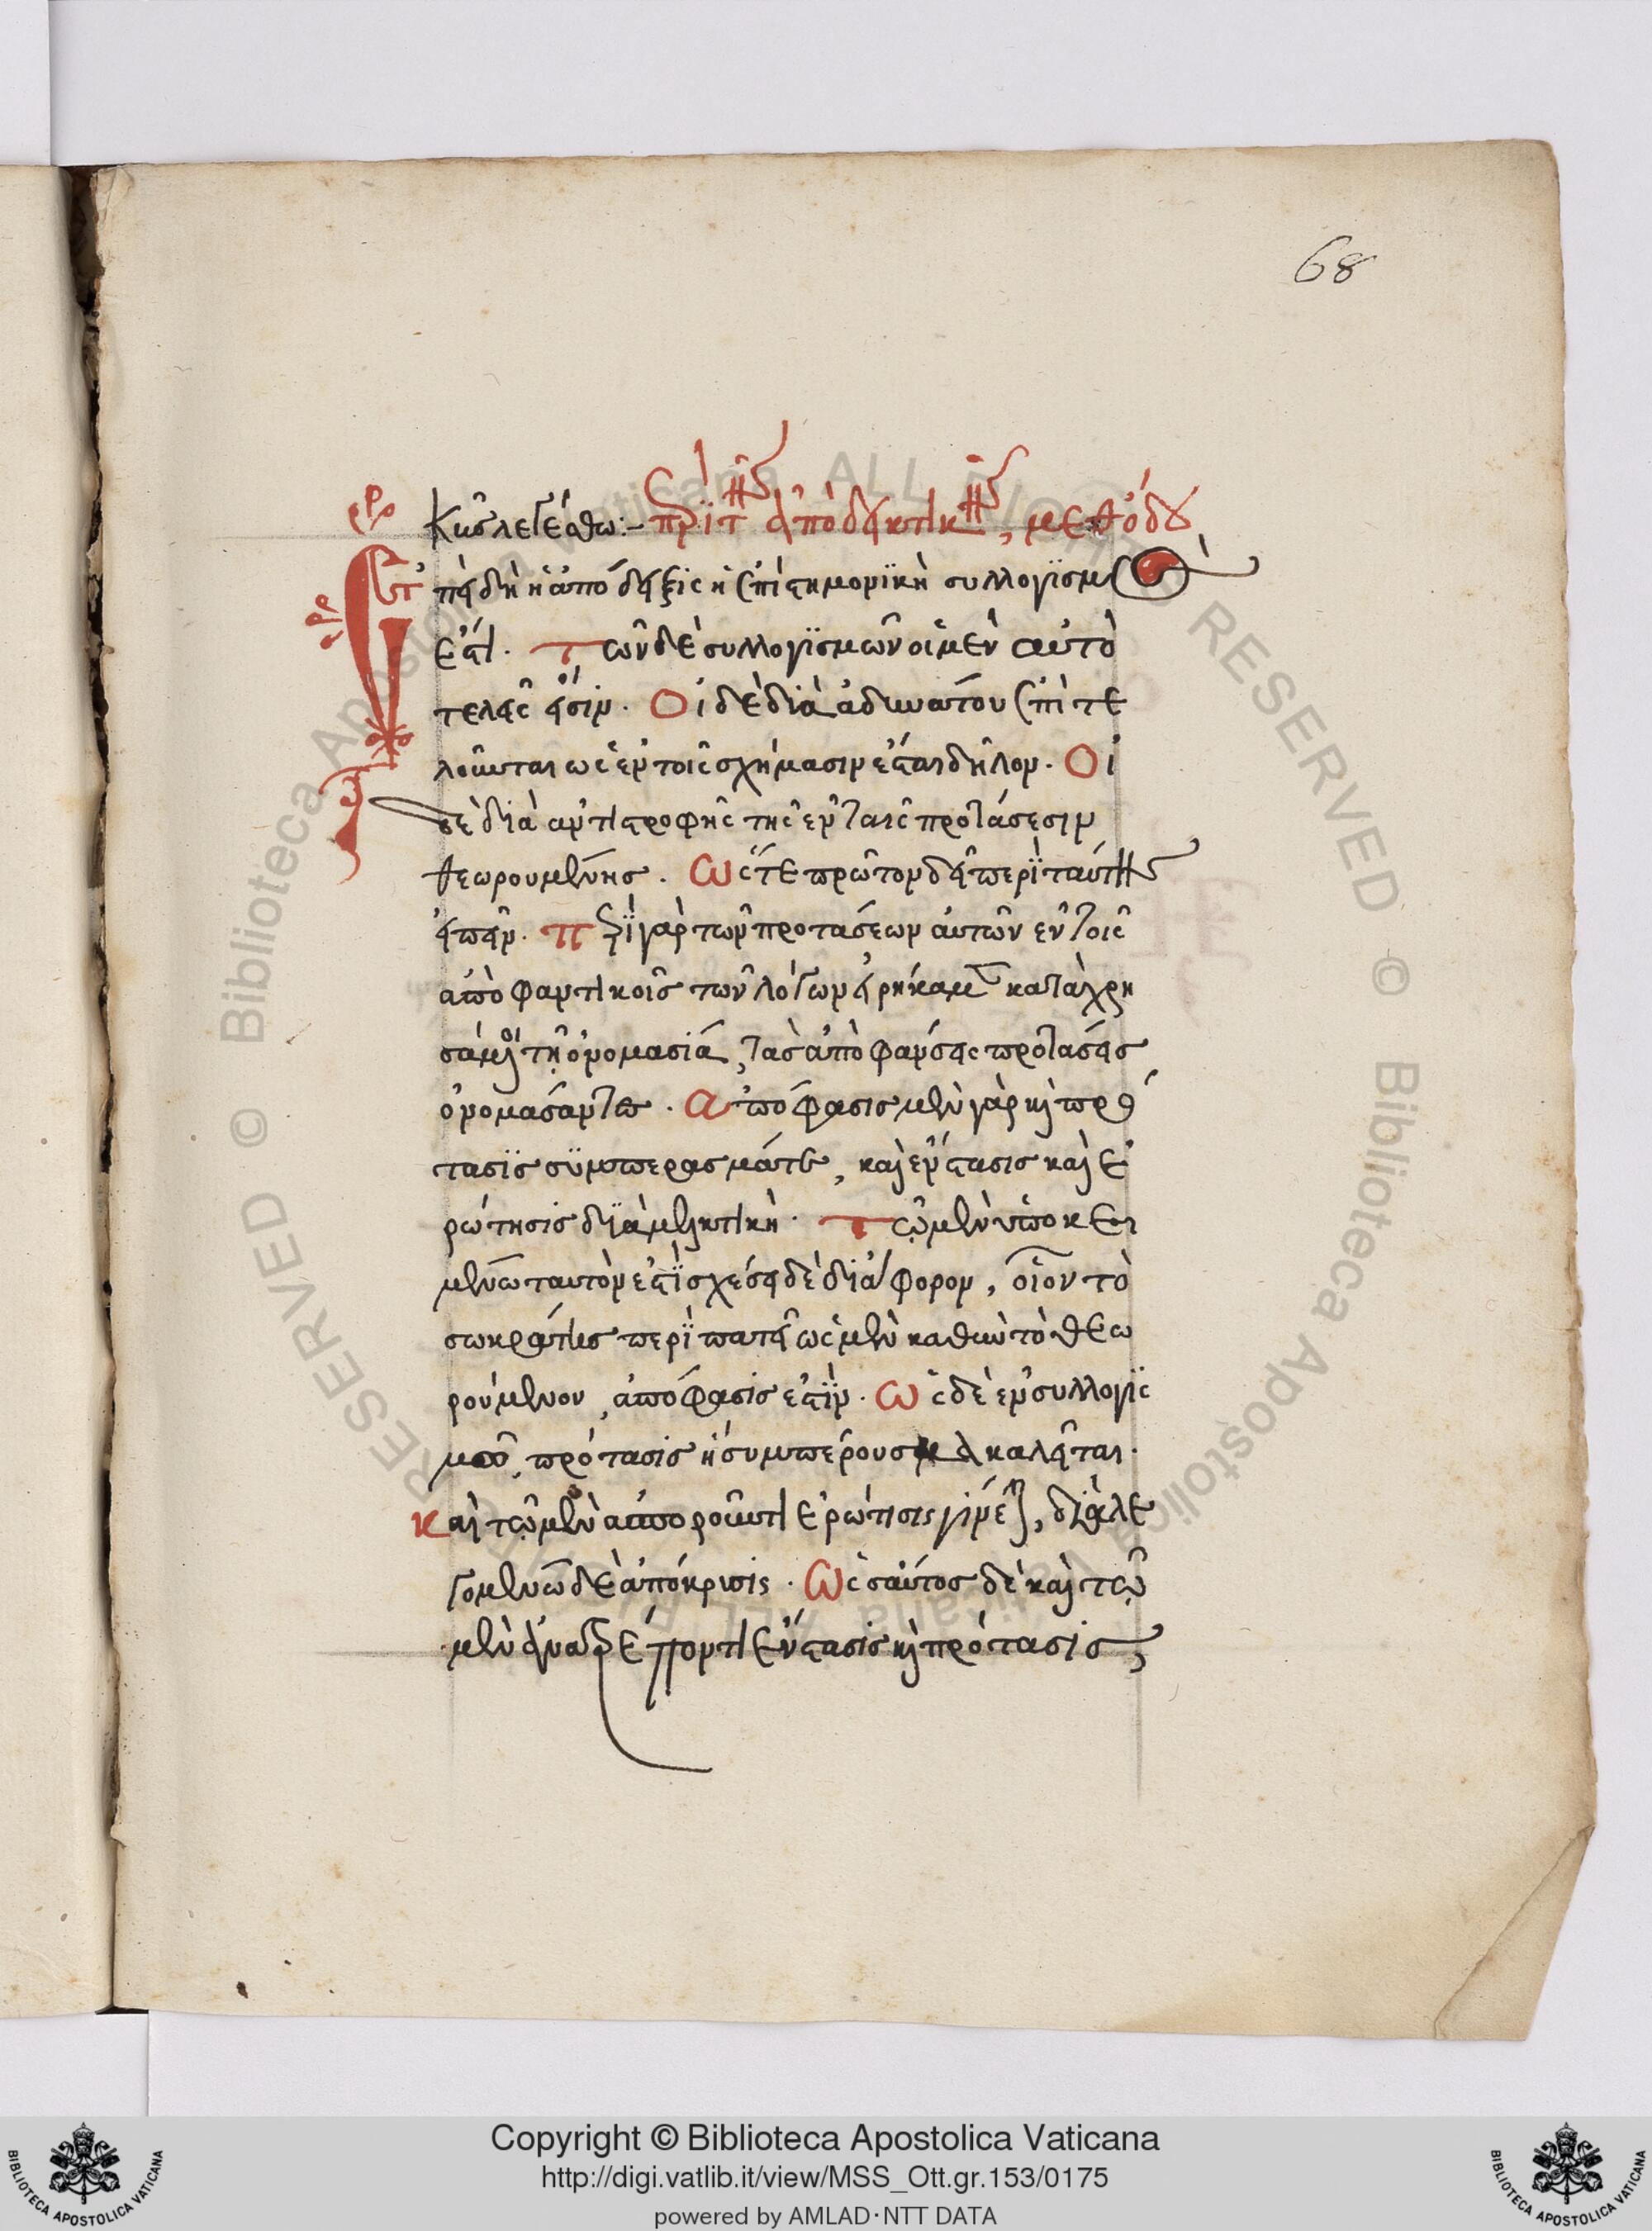 68
κῶς λεγέσθω:– περὶ τῆς ἀποδεικτικῆς, μεθόδου
Ἐπειδὴ ἡ ἀπόδειξις ἡ ἐπιστημονϊκὴ συλλογϊσμὸς
ἐστὶ. τῶν δὲ συλλογϊσμῶν οἱ μὲν αὐτο
τελεῖς εἰσίν. Οἱ δὲ διὰ ἀδυνάτου ἐπιτε
λοῦνται ὡς ἐν τοῖς σχήμασιν ἔσται δῆλον. Οἱ
δὲ διὰ ἀντιστροφῆς τῆς ἐν ταῖς προτάσεσιν
θεωρουμένης. Ὥστε πρῶτον δεῖ περὶ ταύτης
εἰπεῖν. περὶ γὰρ τῶν προτάσεων αὐτῶν ἐν τοῖς
ἀποφαντικοῖς τῶν λόγων εἰρήκαμεν καταχρη
σάμενοι τῇ ὀνομασίᾳ, τὰς ἀποφάνσεις προτάσεις
ὀνομάσαντες. Ἀπόφασις μὲν γὰρ καὶ πρό
τασϊς συμπερασμάτων, καὶ ἔνστασις καὶ ἐ
ρώτησις διαλεκτικὴ. τῷ μὲν ὑποκει
μένω ταυτὸν ἐστὶ σχέσει δὲ διάφορον, οἷον τὸ
σωκράτης περιπατεῖ ὡς μὲν καθ' αὑτὸ θεω
ρούμενον, ἀπόφασις ἐστὶν. Ὡς δὲ ἐν συλλογις
μοῦ, πρότασις ἢ συμπέρουσμα καλεῖται.
Καὶ τῷ μὲν ἀποροῦντι ἐρώτισις γίνεται, διαλε
γομένω δὲ ἀπόκρισις. Ὡσαύτως δὲ καὶ τῷ
μὲν ἀνατρέποντι ἔνστασις καὶ πρότασις,
Copyright © Biblioteca Apostolica Vaticana
http://digi.vatlib.it/view/MSS_Ott.gr.153/0175
powered by AMLAD·NTT DATA